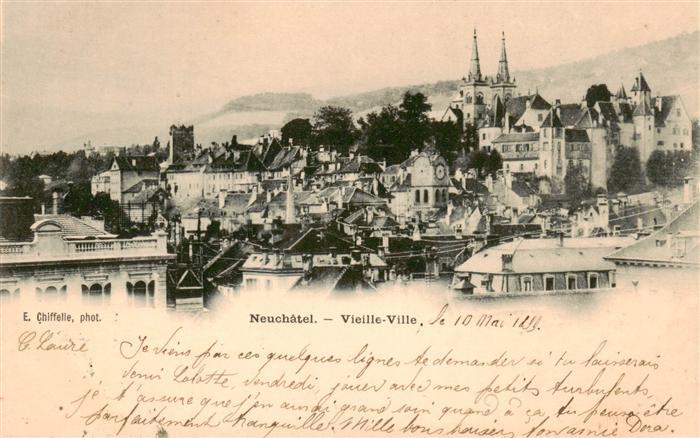 E. Chiffelle, phot.
Neuchâtel. — Vieille-Ville, le 10 Mai
C. Laure
Je viens par ces quelques lignes te demander si tu laisserais
venir Lolotte, vendredi, jouer avec mes petits turbulents,
je t'assure que j'en aurai grand soin quand à ça tu peux être
parfaitement tranquille. Mille bons baisers ton amie Dora.